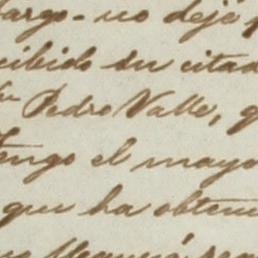 largo - no dejó
cibido su citad
Pedro Valle, q
Tengo el mayo
que ha obten